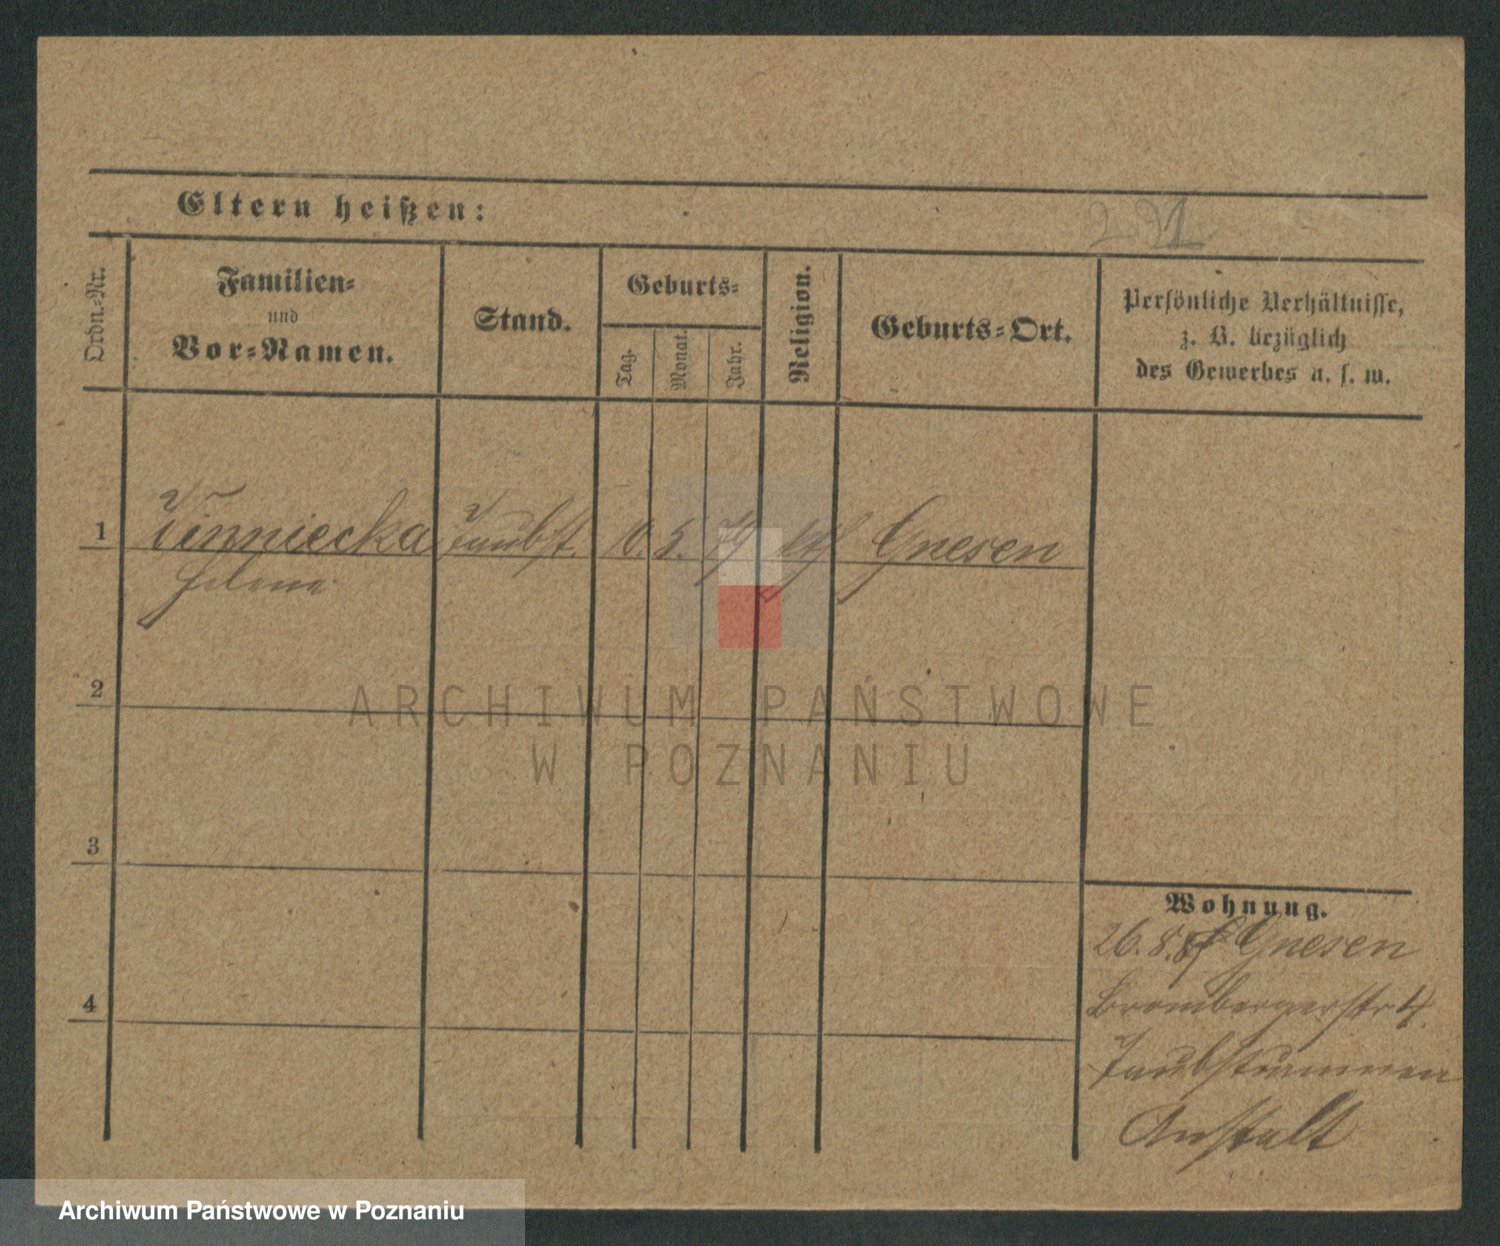 Eltern heißen:
Ordn.-Nr.
Familien-
und
Vor-Namen.
Stand.
Geburts-
Tag.
Monat.
Jahr.
Religion.
Geburts-Ort.
Persönliche Verhältnisse,
z. B. bezüglich
des Gewerbes u. s. w.
1 Taubst. 10. 5. 79 Gnesen
Helene
2
3
4
Wohnung.
26. 8. Gnesen
Brombergerstr 4.
Taubstummen
Anstalt
ARCHIWUM PAŃSTWOWE
W POZNANIU
Archiwum Państwowe w Poznaniu